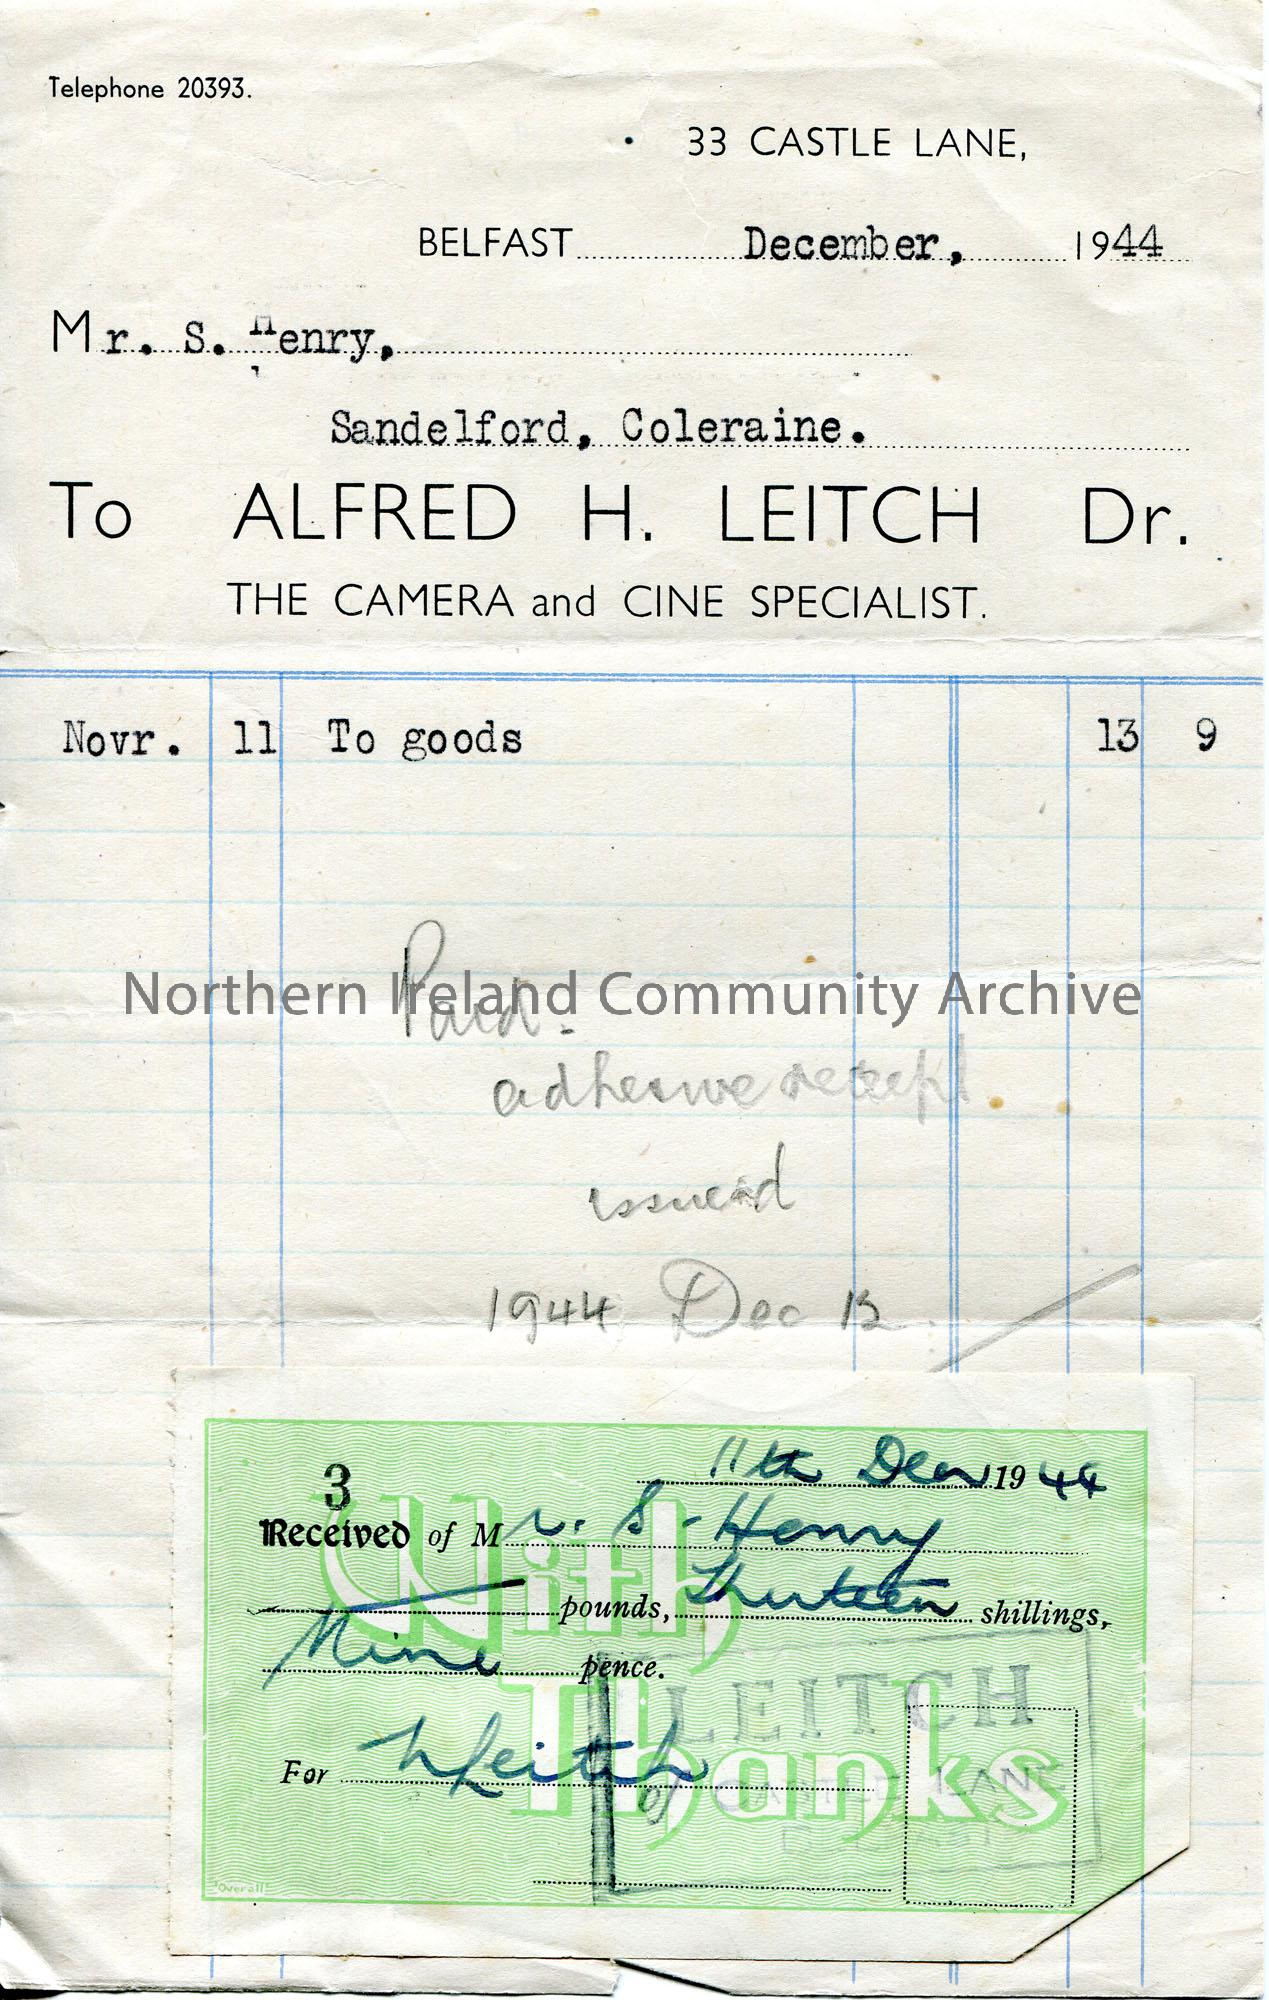 Telephone 20393.
33 CASTLE LANE,
BELFAST December, 1944
Mr. S. Henry,
Sandelford, Coleraine.
To ALFRED H. LEITCH Dr.
THE CAMERA and CINE SPECIALIST.
Novr. 11 To goods 13 9
Northern Ireland Community Archive
Paid.
adhesive receipt
issued
1944 Dec
With Thanks
3 11th Decr 1944
Received of Mr. S. Henry
pounds, Thirteen shillings,
Nine pence.
LEITCH
For Leitch
CASTLE LANE
BELFAST
'Overall'